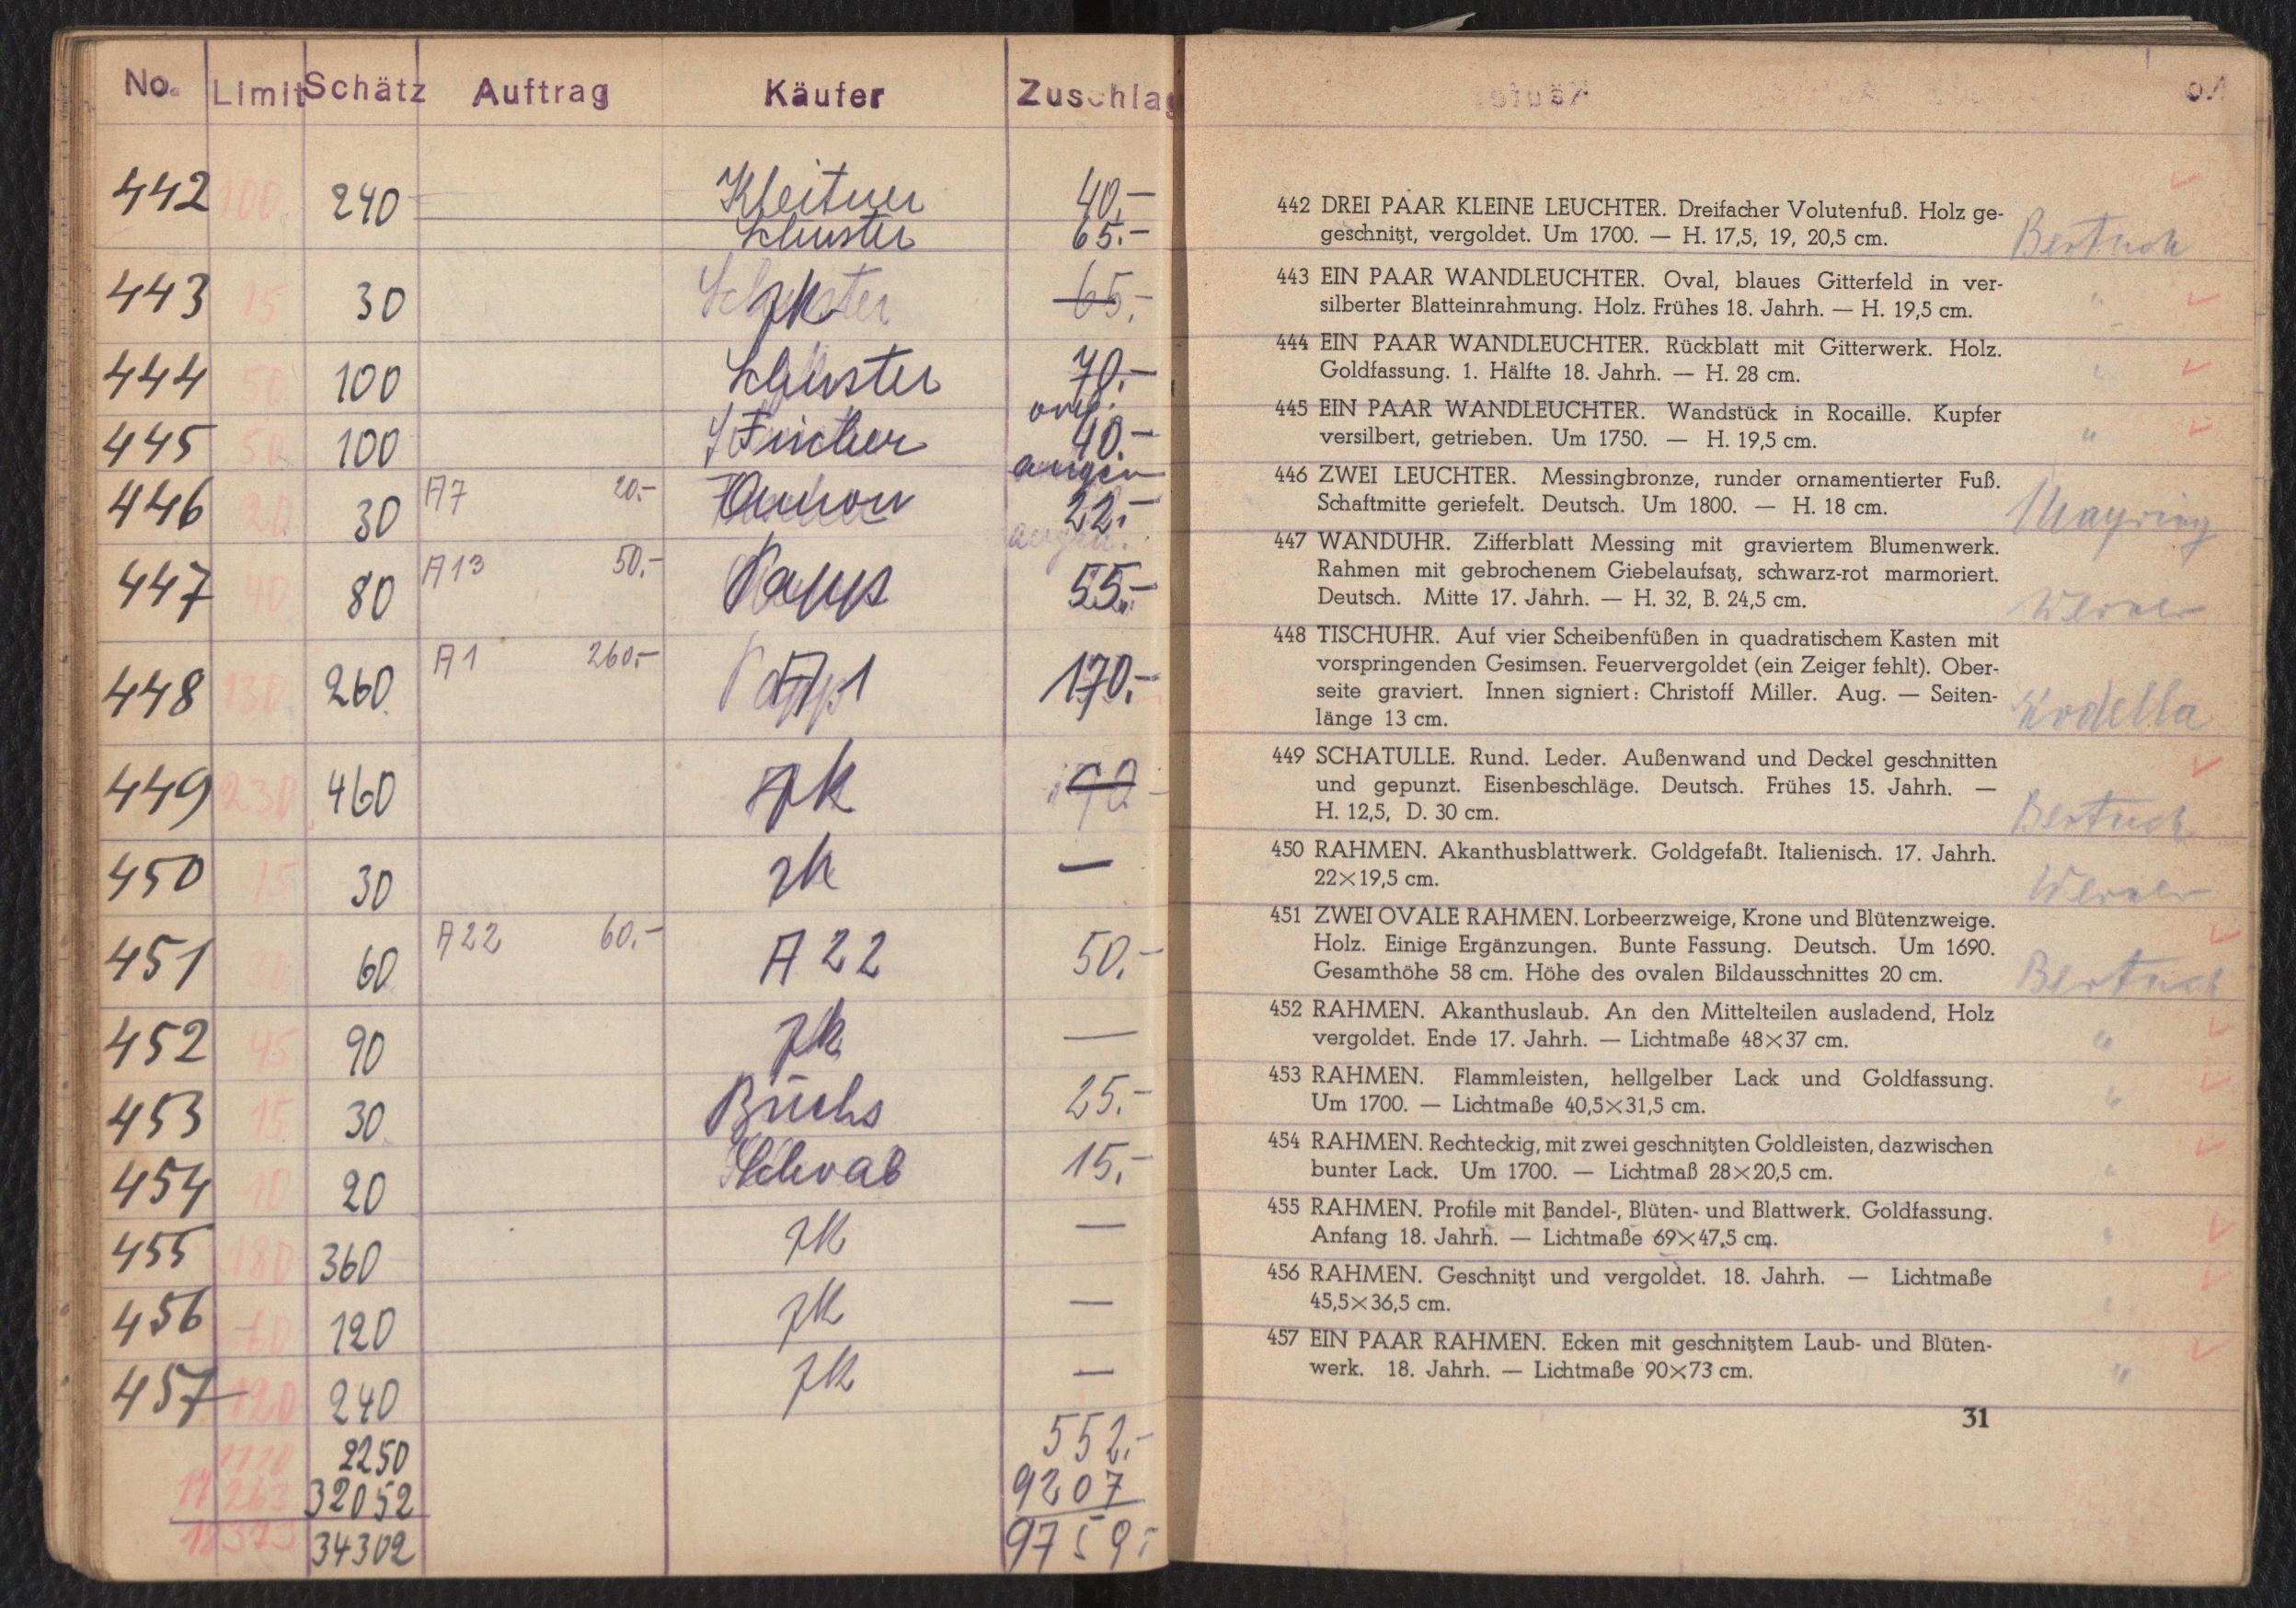 No. Limit Schätz Auftrag Käufer Zuschlag
442 100 240 Kleitner 40.-
Schuster 65.-
443 15 30 Schuster zk 65.-
444 50 100 Schuster 70.-
445 50 100 Fischer 40.-
446 20 30 A7 20.- 22.-
447 40 80 A13 50.- Papps 55.-
448 130 260 A1 260.- A1 170.-
449 230 460 zk
450 15 30 zk —
451 30 60 A22 60.- A22 50.-
452 45 90 zk —
453 15 30 Büchs 25.-
454 10 20 Schwab 15.-
455 180 360 zk —
456 60 120 zk —
457 120 240 zk —
1110 2250 552.-
17263 32052 9207
18373 34302 9759.-
442 DREI PAAR KLEINE LEUCHTER. Dreifacher Volutenfuß. Holz ge-
geschnitzt, vergoldet. Um 1700. — H. 17,5, 19, 20,5 cm. Bertuch
443 EIN PAAR WANDLEUCHTER. Oval, blaues Gitterfeld in ver-
silberter Blatteinrahmung. Holz. Frühes 18. Jahrh. — H. 19,5 cm. "
444 EIN PAAR WANDLEUCHTER. Rückblatt mit Gitterwerk. Holz.
Goldfassung. 1. Hälfte 18. Jahrh. — H. 28 cm. "
445 EIN PAAR WANDLEUCHTER. Wandstück in Rocaille. Kupfer
versilbert, getrieben. Um 1750. — H. 19,5 cm. "
446 ZWEI LEUCHTER. Messingbronze, runder ornamentierter Fuß.
Schaftmitte geriefelt. Deutsch. Um 1800. — H. 18 cm. Mayring
447 WANDUHR. Zifferblatt Messing mit graviertem Blumenwerk.
Rahmen mit gebrochenem Giebelaufsatz, schwarz-rot marmoriert.
Deutsch. Mitte 17. Jahrh. — H. 32, B. 24,5 cm. Werner
448 TISCHUHR. Auf vier Scheibenfüßen in quadratischem Kasten mit
vorspringenden Gesimsen. Feuervergoldet (ein Zeiger fehlt). Ober-
seite graviert. Innen signiert: Christoff Miller. Aug. — Seiten-
länge 13 cm. Kodella
449 SCHATULLE. Rund. Leder. Außenwand und Deckel geschnitten
und gepunzt. Eisenbeschläge. Deutsch. Frühes 15. Jahrh. —
H. 12,5, D. 30 cm. Bertuch
450 RAHMEN. Akanthusblattwerk. Goldgefaßt. Italienisch. 17. Jahrh.
22×19,5 cm. Werner
451 ZWEI OVALE RAHMEN. Lorbeerzweige, Krone und Blütenzweige.
Holz. Einige Ergänzungen. Bunte Fassung. Deutsch. Um 1690.
Gesamthöhe 58 cm. Höhe des ovalen Bildausschnittes 20 cm. Bertuch
452 RAHMEN. Akanthuslaub. An den Mittelteilen ausladend, Holz
vergoldet. Ende 17. Jahrh. — Lichtmaße 48×37 cm. "
453 RAHMEN. Flammleisten, hellgelber Lack und Goldfassung.
Um 1700. — Lichtmaße 40,5×31,5 cm. "
454 RAHMEN. Rechteckig, mit zwei geschnitzten Goldleisten, dazwischen
bunter Lack. Um 1700. — Lichtmaß 28×20,5 cm. "
455 RAHMEN. Profile mit Bandel-, Blüten- und Blattwerk. Goldfassung.
Anfang 18. Jahrh. — Lichtmaße 69×47,5 cm. "
456 RAHMEN. Geschnitzt und vergoldet. 18. Jahrh. — Lichtmaße
45,5×36,5 cm. "
457 EIN PAAR RAHMEN. Ecken mit geschnitztem Laub- und Blüten-
werk. 18. Jahrh. — Lichtmaße 90×73 cm. "
31